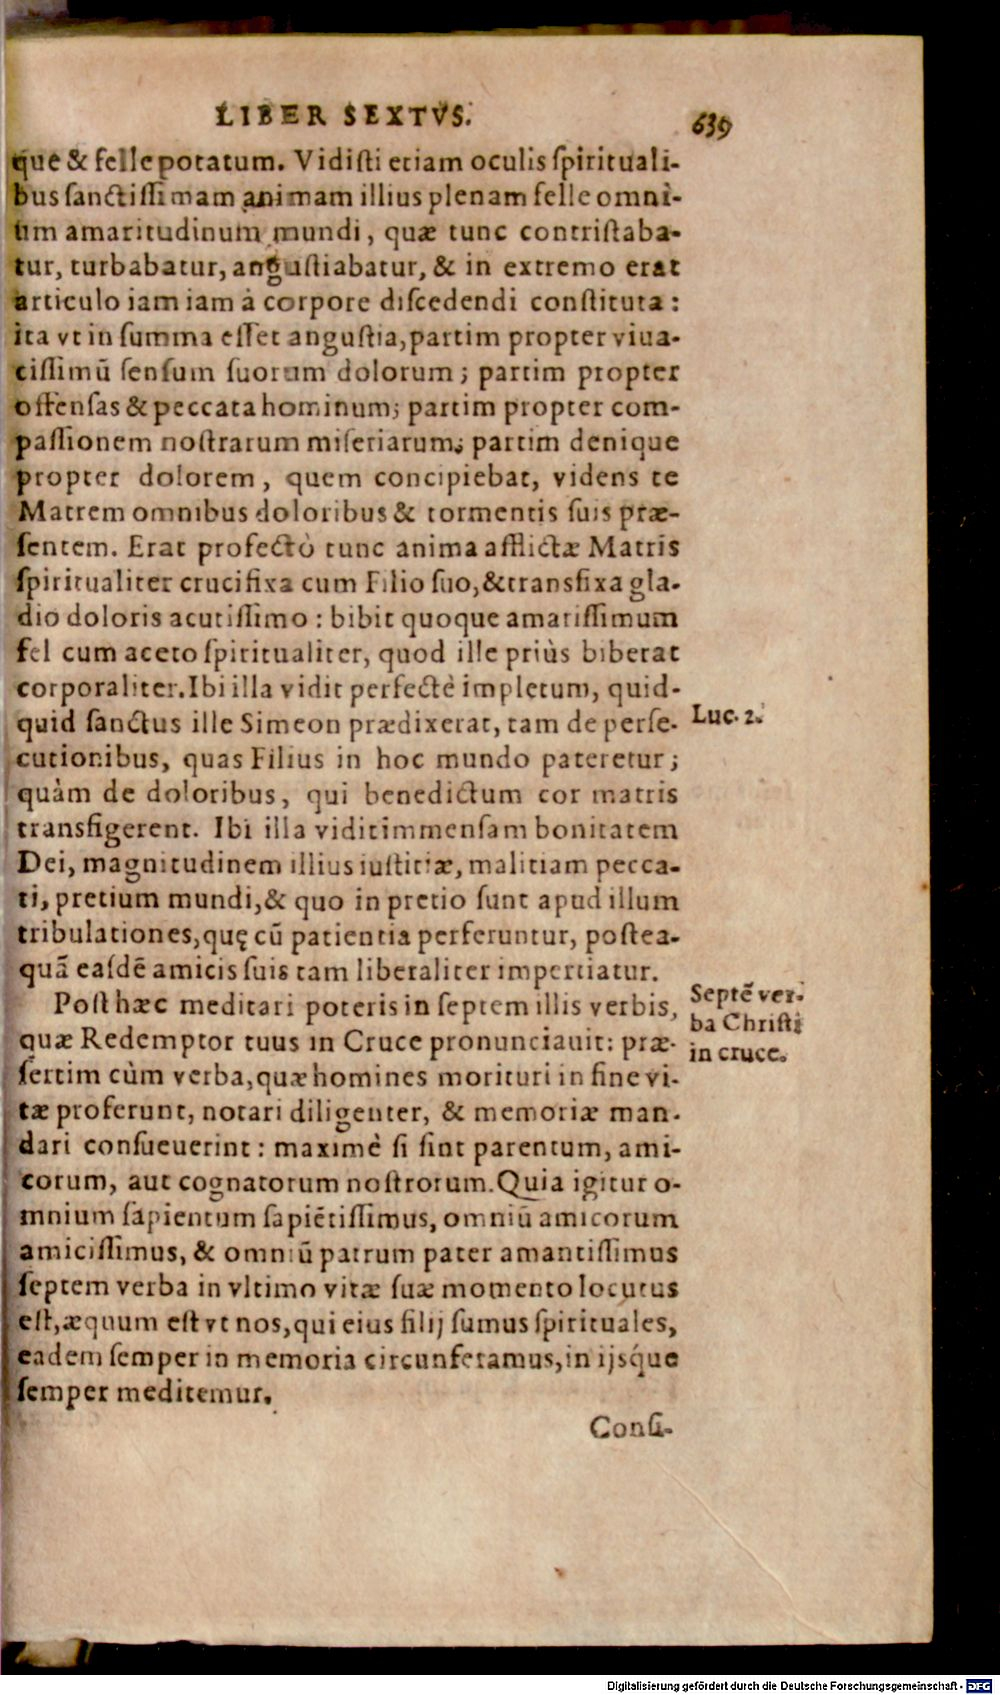 LIBER SEXTVS. 639
que & felle potatum. Vidisti etiam oculis spirituali-
bus sanctissimam animam illius plenam felle omni-
um amaritudinum mundi, quæ tunc contristaba-
tur, turbabatur, angustiabatur, & in extremo erat
articulo iam iam à corpore discedendi constituta:
ita vt in summa esset angustia, partim propter viua-
cissimū sensum suorum dolorum; partim propter
offensas & peccata hominum; partim propter com-
passionem nostrarum miseriarum; partim denique
propter dolorem, quem concipiebat, videns te
Matrem omnibus doloribus & tormentis suis præ-
sentem. Erat profectò tunc anima afflictæ Matris
spiritualiter crucifixa cum Filio suo, & transfixa gla-
dio doloris acutissimo: bibit quoque amarissimum
fel cum aceto spiritualiter, quod ille priùs biberat
corporaliter. Ibi illa vidit perfectè impletum, quid-
quid sanctus ille Simeon prædixerat, tam de perse-
Luc. 2.
cutionibus, quas Filius in hoc mundo pateretur;
quàm de doloribus, qui benedictum cor matris
transfigerent. Ibi illa vidit immensam bonitatem
Dei, magnitudinem illius iustitiæ, malitiam pecca-
ti, pretium mundi, & quo in pretio sunt apud illum
tribulationes, quę cū patientia perferuntur, postea-
quā easdē amicis suis tam liberaliter impertiatur.
Post hæc meditari poteris in septem illis verbis,
quæ Redemptor tuus in Cruce pronunciauit: præ-
Septē ver-
ba Christi
in cruce.
sertim cùm verba, quæ homines morituri in fine vi-
tæ proferunt, notari diligenter, & memoriæ man-
dari consueuerint: maximè si sint parentum, ami-
corum, aut cognatorum nostrorum. Quia igitur o-
mnium sapientum sapiētissimus, omniū amicorum
amicissimus, & omniū patrum pater amantissimus
septem verba in vltimo vitæ suæ momento locutus
est, æquum est vt nos, qui eius filij sumus spirituales,
eadem semper in memoria circunferamus, in ijsq́ue
semper meditemur.
Consi-
Digitalisierung gefördert durch die Deutsche Forschungsgemeinschaft - DFG